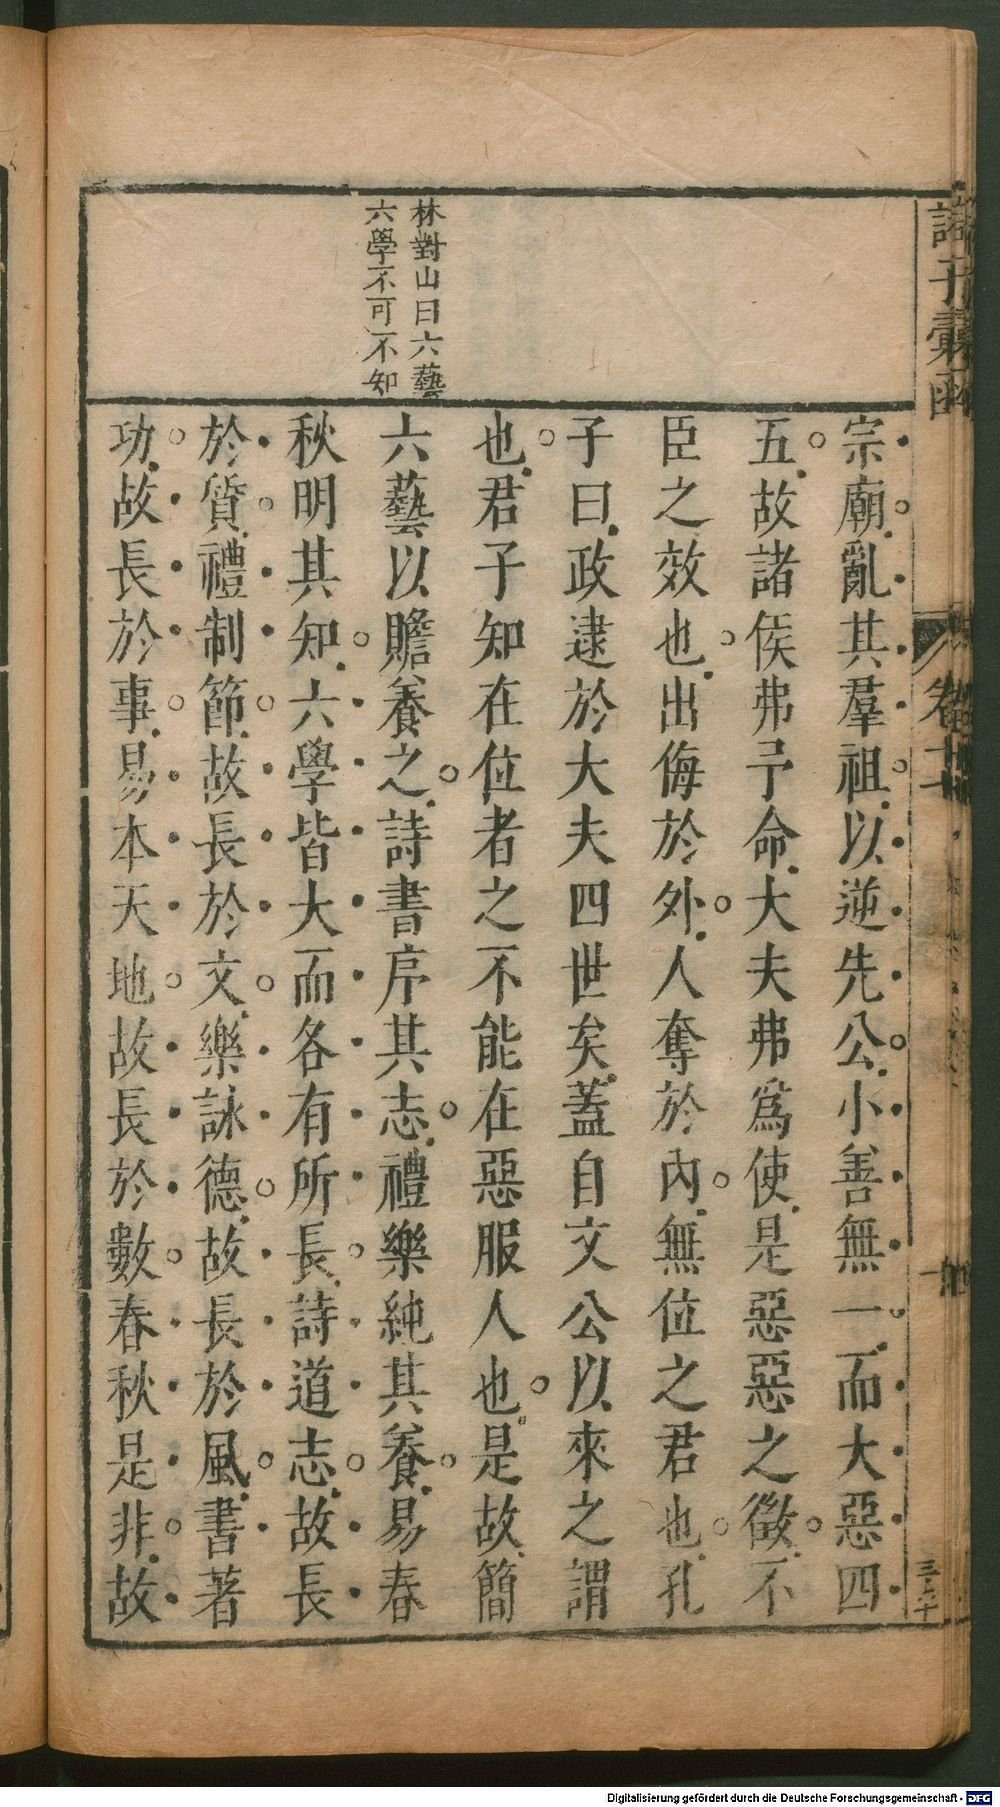 諸子彙函
宗廟亂其羣祖以逆先公小善無一而大惡四
五故諸侯弗予命大夫弗爲使是惡惡之徵不
臣之效也出侮於外人奪於內無位之君也孔
子曰政逮於大夫四世矣蓋自文公以來之謂
也君子知在位者之不能在惡服人也是故簡
六藝以贍養之詩書序其志禮樂純其養易春
秋明其知六學皆大而各有所長詩道志故長
於質禮制節故長於文樂詠德故長於風書著
功故長於事易本天地故長於數春秋是非故
林對山曰六藝
六學不可不知
Digitalisierung gefördert durch die Deutsche Forschungsgemeinschaft - DFG